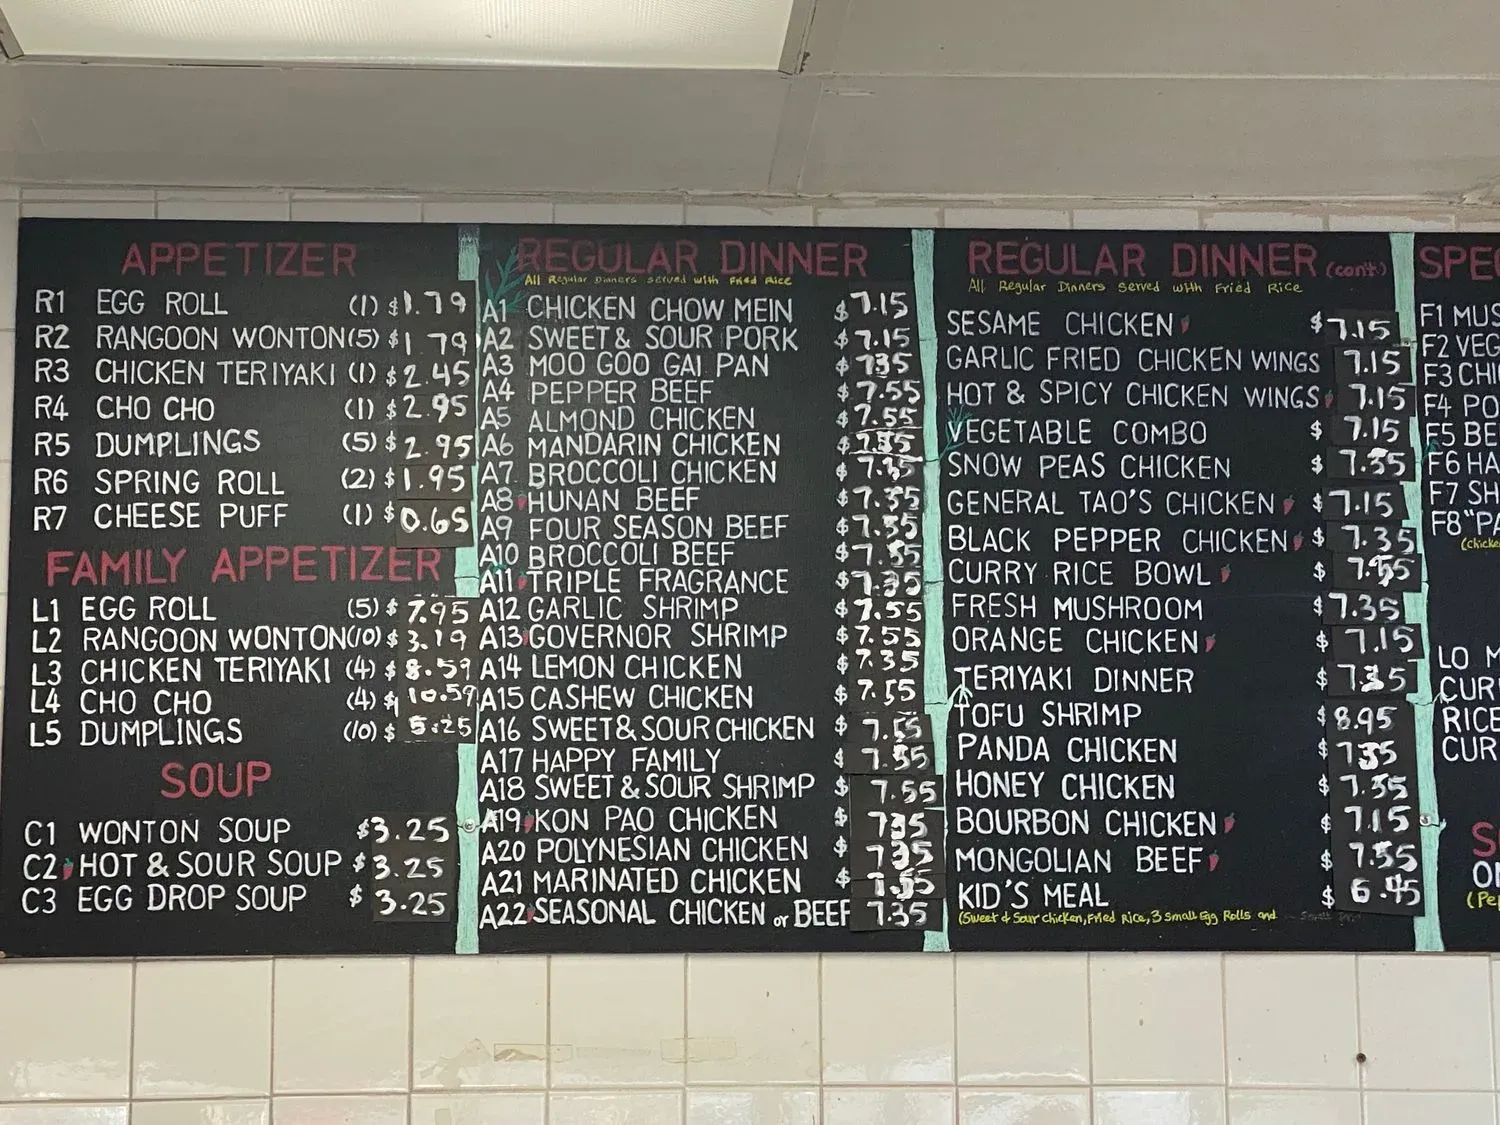 APPETIZER
R1 EGG ROLL (1) $1.79
R2 RANGOON WONTON(5) $1.79
R3 CHICKEN TERIYAKI (1) $2.45
R4 CHO CHO (1) $2.95
R5 DUMPLINGS (5) $2.95
R6 SPRING ROLL (2) $1.95
R7 CHEESE PUFF (1) $0.65
FAMILY APPETIZER
L1 EGG ROLL (5) $7.95
L2 RANGOON WONTON(10) $3.19
L3 CHICKEN TERIYAKI (4) $8.59
L4 CHO CHO (4) $10.59
L5 DUMPLINGS (10) $5.25
SOUP
C1 WONTON SOUP $3.25
C2 HOT & SOUR SOUP $3.25
C3 EGG DROP SOUP $3.25
REGULAR DINNER
All Regular Dinners served with Fried Rice
A1 CHICKEN CHOW MEIN $7.15
A2 SWEET & SOUR PORK $7.15
A3 MOO GOO GAI PAN $7.35
A4 PEPPER BEEF $7.55
A5 ALMOND CHICKEN $7.55
A6 MANDARIN CHICKEN $
A7 BROCCOLI CHICKEN $7.35
A8 HUNAN BEEF $7.35
A9 FOUR SEASON BEEF $
A10 BROCCOLI BEEF $
A11 TRIPLE FRAGRANCE $
A12 GARLIC SHRIMP $7.55
A13 GOVERNOR SHRIMP $7.55
A14 LEMON CHICKEN $7.35
A15 CASHEW CHICKEN $7.55
A16 SWEET & SOUR CHICKEN $
A17 HAPPY FAMILY $
A18 SWEET & SOUR SHRIMP $7.55
A19 KON PAO CHICKEN $7.35
A20 POLYNESIAN CHICKEN $7.35
A21 MARINATED CHICKEN $
A22 SEASONAL CHICKEN or BEEF 7.35
REGULAR DINNER (con't)
All Regular Dinners served with Fried Rice
SESAME CHICKEN $7.15
GARLIC FRIED CHICKEN WINGS 7.15
HOT & SPICY CHICKEN WINGS 7.15
VEGETABLE COMBO $7.15
SNOW PEAS CHICKEN $
GENERAL TAO'S CHICKEN $7.15
BLACK PEPPER CHICKEN $7.35
CURRY RICE BOWL $
FRESH MUSHROOM $7.35
ORANGE CHICKEN $7.15
TERIYAKI DINNER $7.35
TOFU SHRIMP $8.95
PANDA CHICKEN $7.35
HONEY CHICKEN $7.35
BOURBON CHICKEN $7.15
MONGOLIAN BEEF $7.55
KID'S MEAL $6.45
(Sweet & Sour chicken, Fried Rice, 3 small Egg Rolls and
SPE
F1 MUS
F2 VEG
F3 CHI
F4 PO
F5 BE
F6 HA
F7 SH
F8 "PA
(chicke
LO M
CUR
RICE
CUR
S
(Pe